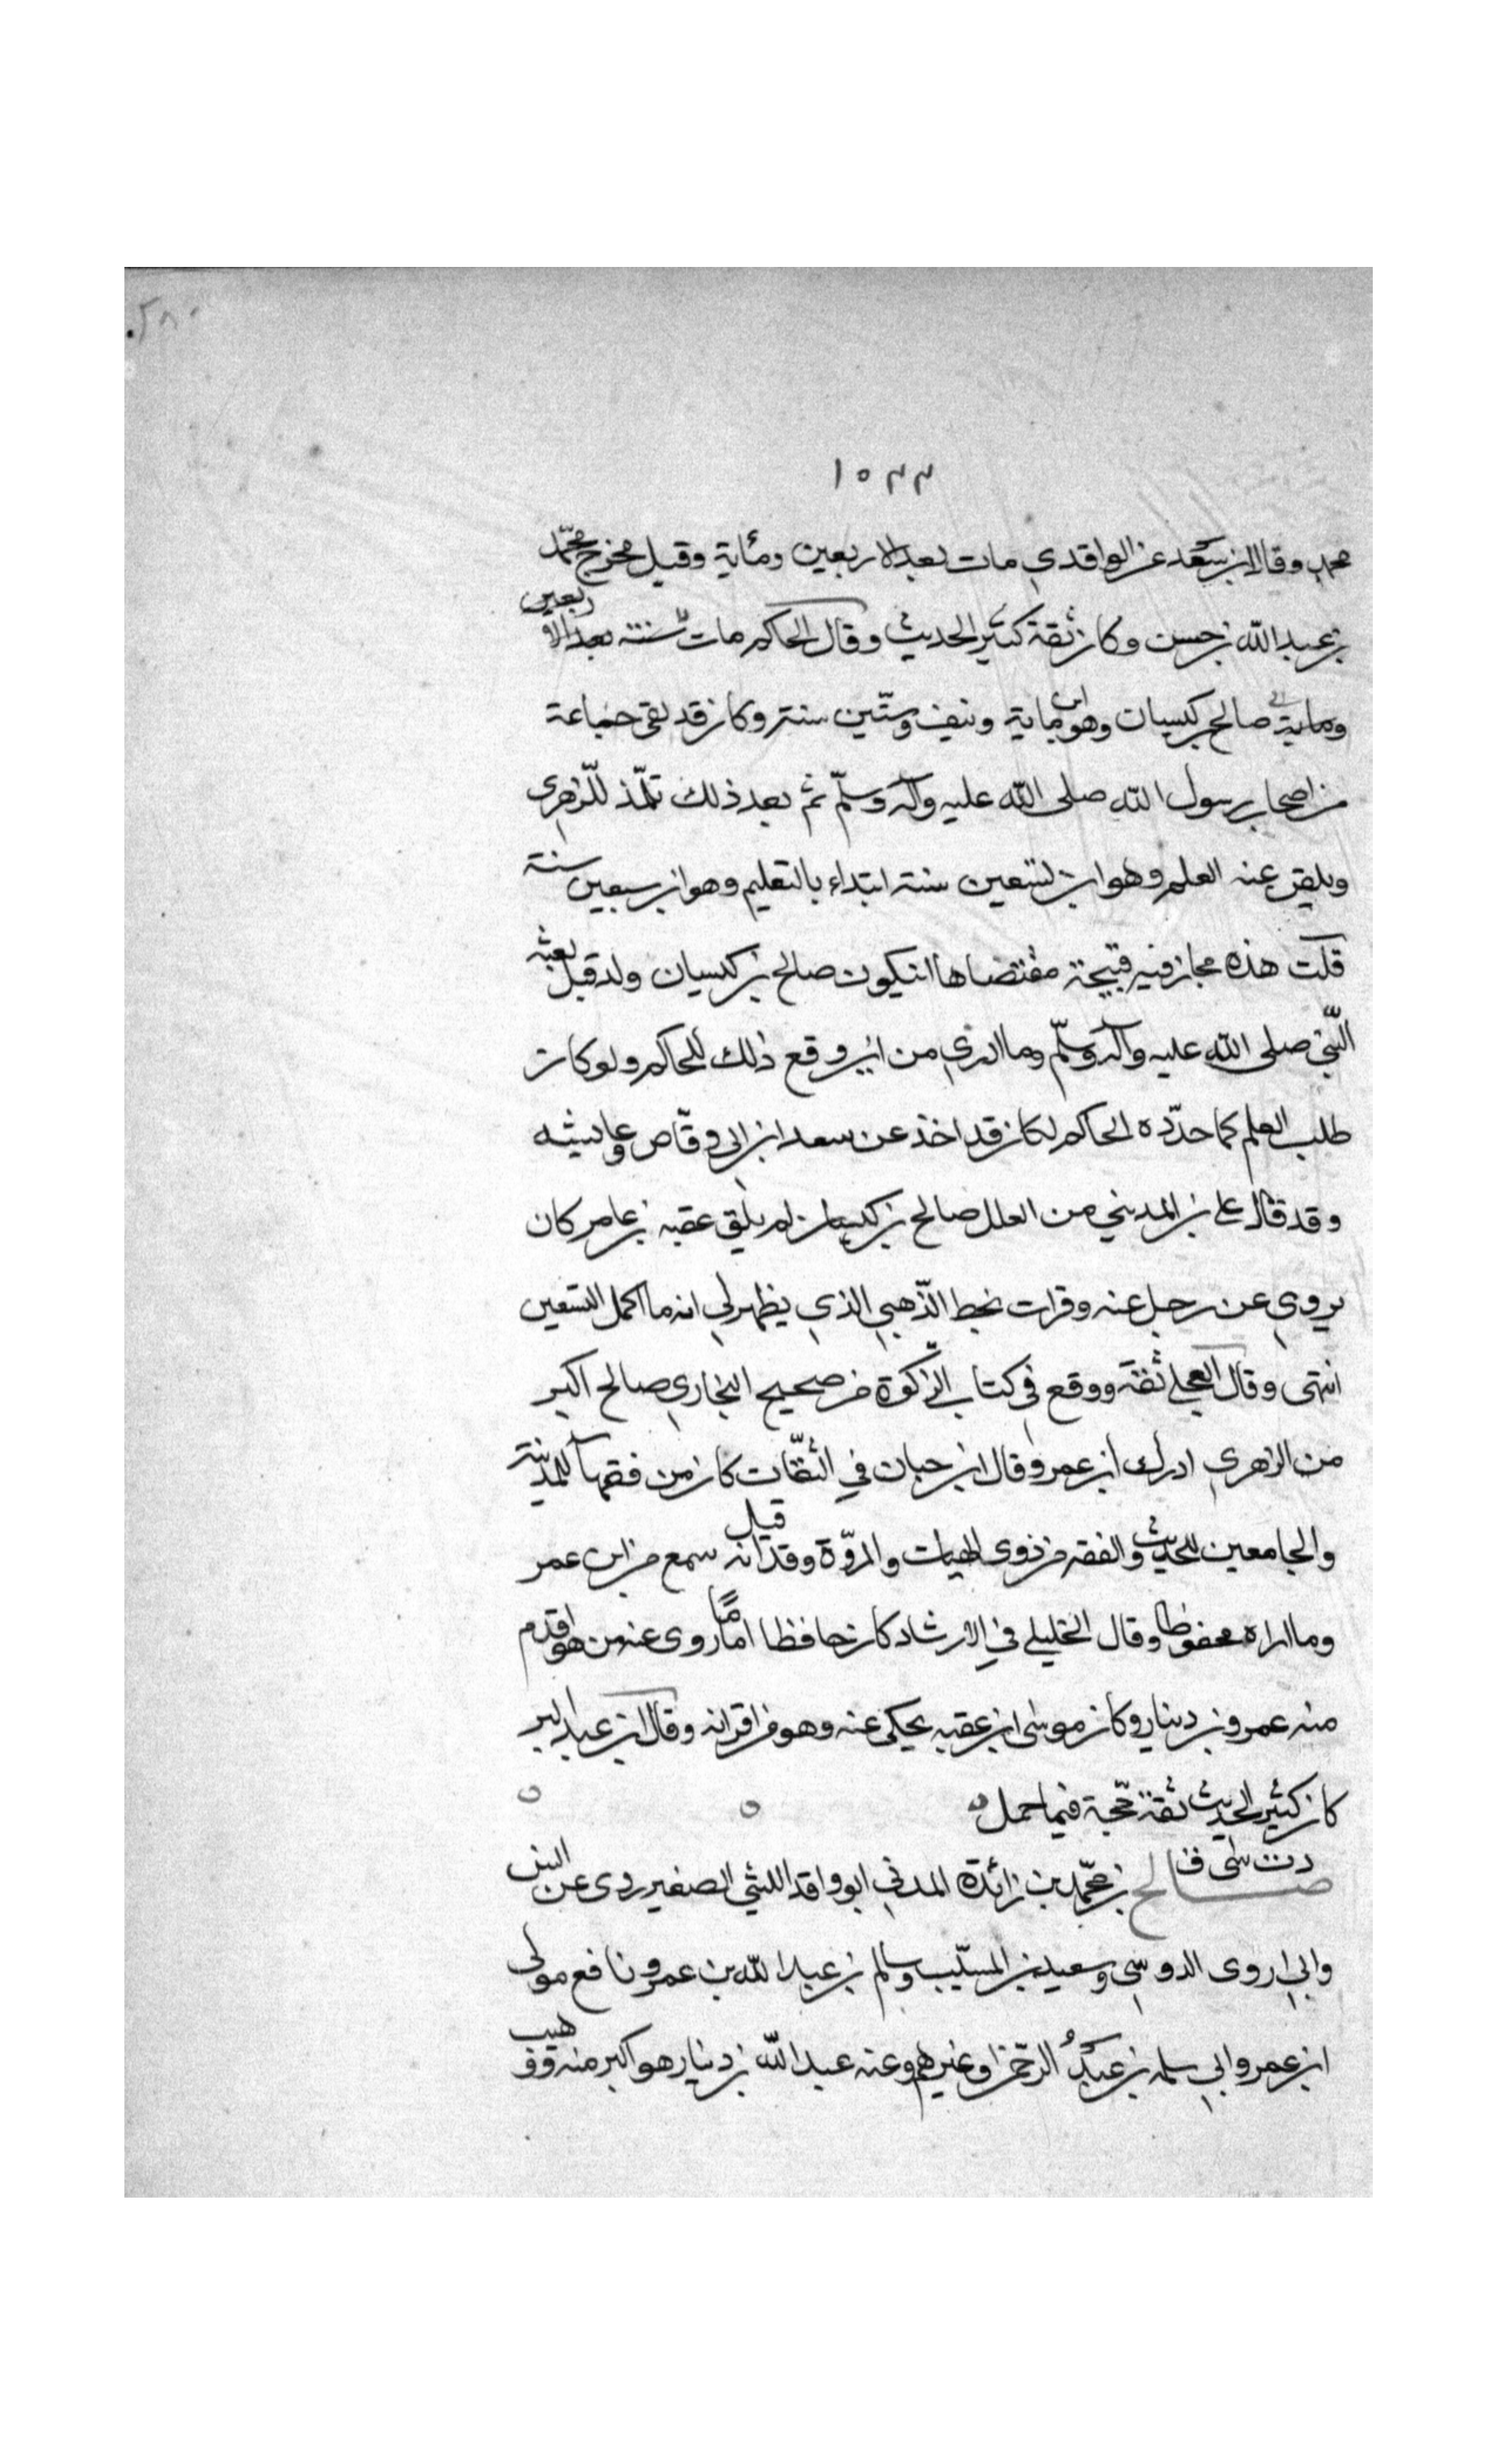 ١٥٣٣
محمد وقال ابن سعد عن الواقدي مات بعد الاربعين ومائة وقيل مخرج محمد
بن عبد الله بن حسن وكان ثقة كثير الحديث وقال الحاكم مات سنة بعد الاربعين
وماية صالح بن كيسان وهو ابن ماية ونيف وستين سنة وكان قد لقى جماعة
من اصحاب رسول الله صلى الله عليه وآله وسلم ثم بعد ذلك تلمذ للزهرى
وتلقن عنه العلم وهو ابن تسعين سنة ابتداء بالتعليم وهو ابن سبعين سنة
قلت هذه مجازفة قبيحة مقتضاها ان يكون صالح بن كيسان ولد قبل بعثه
النبي صلى الله عليه وآله وسلم وما ادري من اين وقع ذلك للحاكم ولو كان
طلب العلم كما حدده الحاكم لكان قد اخذ عن سعد ابن ابي وقاص وعايشه
وقد قال علي بن المديني من العلل صالح بن كيسان لم يلق عقبه بن عامر كان
يروي عن رجل عنه وقرات بخط الذهبي الذي يظهر لي انه ما اكمل التسعين
انتهى وقال العجلي ثقة ووقع في كتاب الزكوة من صحيح البخاري صالح اكبر
من الزهري ادرك ابن عمر وقال ابن حبان في الثقات كان من فقهاء المدينة
والجامعين للحديث والفقه من ذوى الهيات والمروّة وقد قيل انه سمع من ابن عمر
وما اراه محفوظا وقال الخليلي في الارشاد كان حافظا اماما روى عنه من هو اقدم
منه عمرو بن دينار وكان موسى ابن عقبه يحكى عنه وهو من اقرانه وقال ابن عبد البر
كان كثير الحديث ثقة حجة فيما حمل
دت سى ق
صالح بن محمد بن زائدة المدني ابو واقد الليثي الصغير روى عن انس
وابي اروى الدوسي وسعيد بن المسيب وسالم بن عبد الله بن عمرو نافع مولى
ابن عمر وابي سلمه بن عبد الرحمن وغيرهم وعنه عبد الله بن دينار هو اكبر منه ووهيب